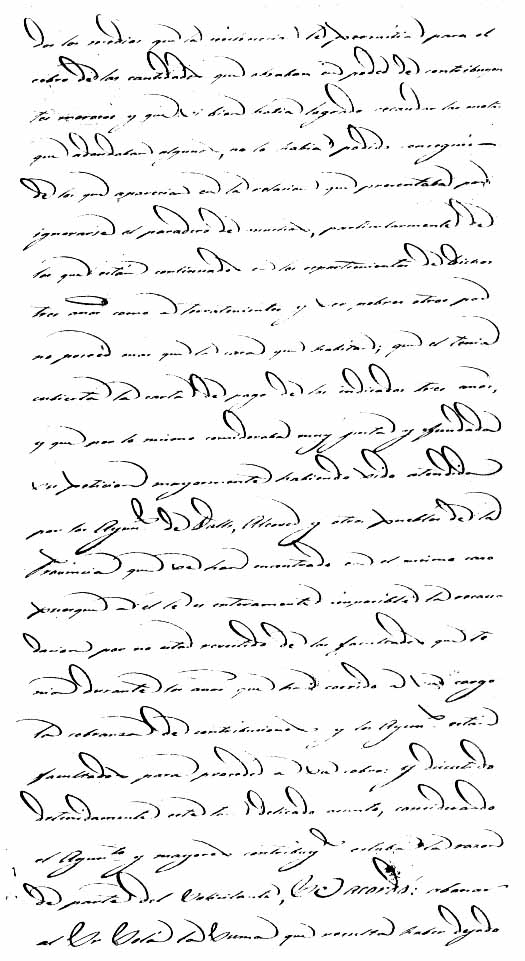 dos los medios que la instruccion le permitia para el
cobro de las cantidades que obraban en poder de contribuyen
tes morosos y que si bien habia logrado recaudar las mets
que adeudaban algunos, no lo habia podido conseguir
de los que aparecian en la relacion que presentaba por
ignorarse el paradero de muchos, particularmente de
los que estan continuados en los repartimientos de dichos
tres años como a terratenientes y ser pobres otros por
no poseer mas que la casa que habitan; que el tenia
cubierta la carta de pago de los indicados tres años,
y que por lo mismo consideraba muy justa y fundada
su peticion mayormente habiendo sido atendida
por los Ayunt.s de Valls, Alcover y otros pueblos de la
Provincia que se han encontrado en el mismo caso
porque a él le es enteramente imposible la recau
dacion por no estar revestido de las facultades que te
nia durante los años que ha corrido a su cargo
la cobranza de contribuciones y los Ayunt.s estan
facultados para proceder a su cobro: y discutido
detenidamente este tan delicado asunto, considerando
el Ayunt.o y mayores contribuy.s estaba la razon
de parte del Solicitante, Se acordó: abonar
al Sr Solá la suma que resulta haber dejado